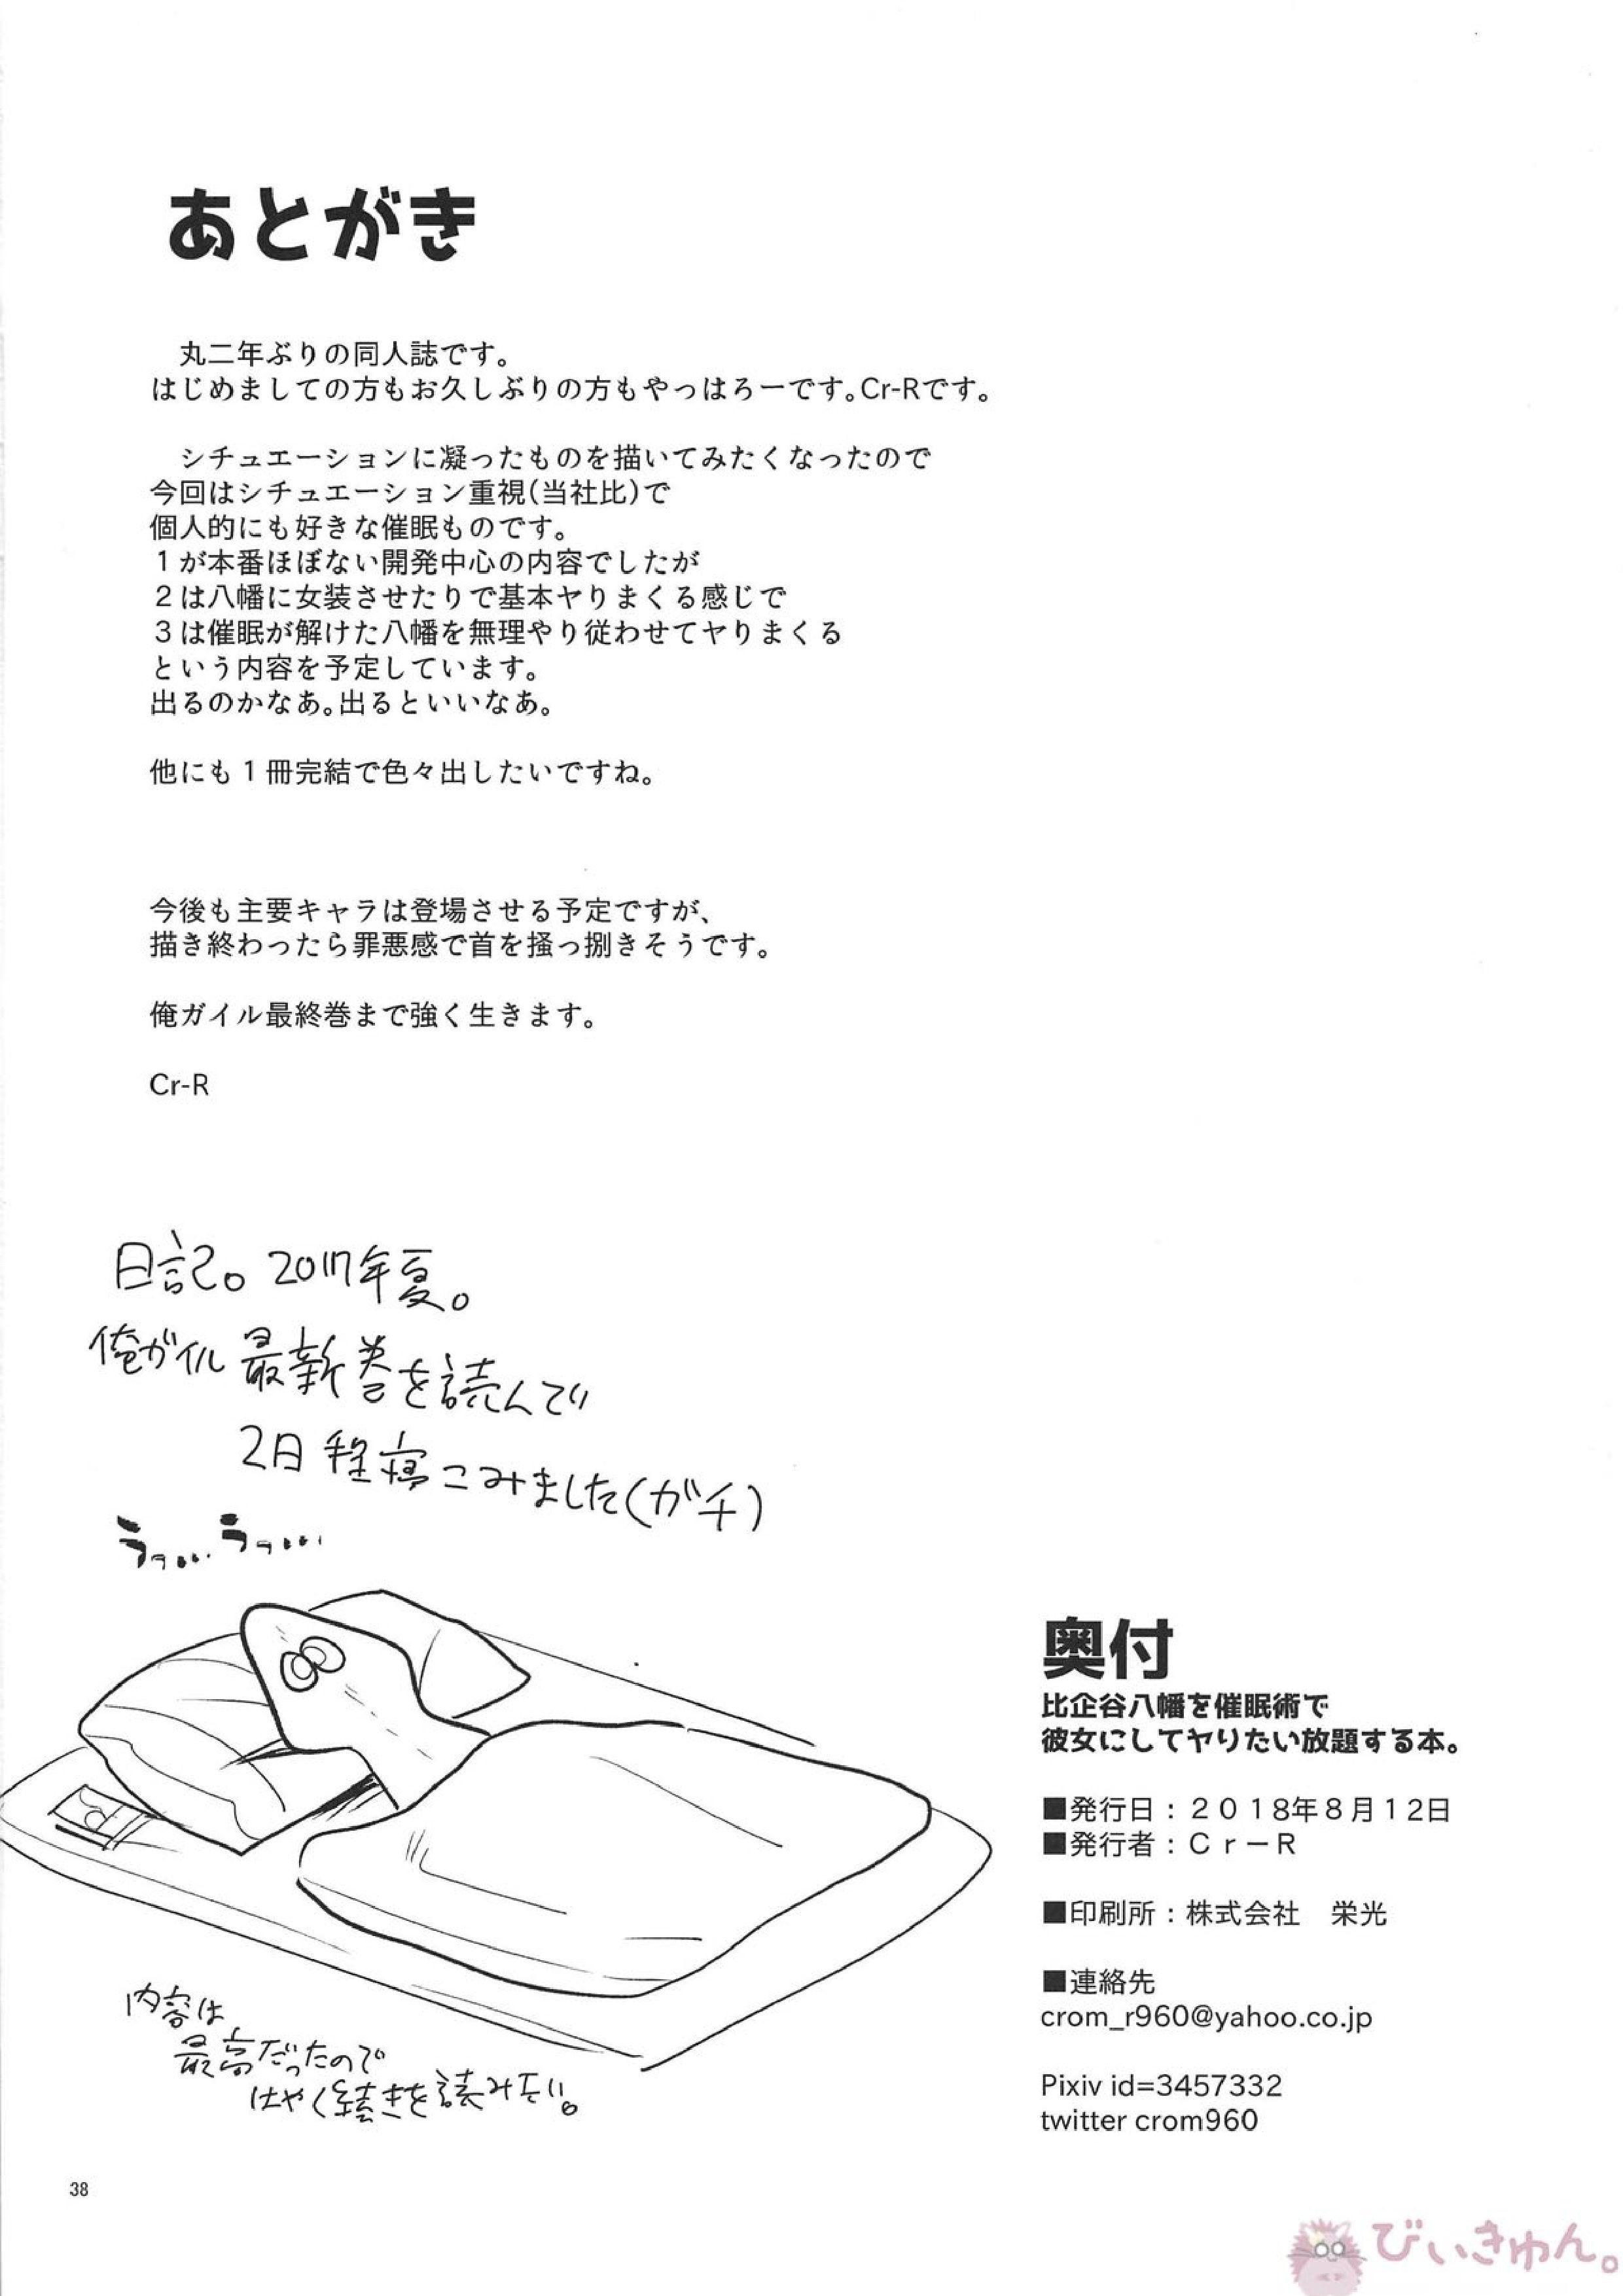 あとがき
丸二年ぶりの同人誌です。
はじめましての方もお久しぶりの方もやっはろーです。Cr-Rです。
シチュエーションに凝ったものを描いてみたくなったので
今回はシチュエーション重視(当社比)で
個人的にも好きな催眠ものです。
1が本番ほぼない開発中心の内容でしたが
2は八幡に女装させたりで基本ヤりまくる感じで
3は催眠が解けた八幡を無理やり従わせてヤりまくる
という内容を予定しています。
出るのかなあ。出るといいなあ。
他にも1冊完結で色々出したいですね。
今後も主要キャラは登場させる予定ですが、
描き終わったら罪悪感で首を掻っ捌きそうです。
俺ガイル最終巻まで強く生きます。
Cr-R
日記。2017年夏。
俺ガイル最新巻を読んで
2日程寝こみました(ガチ)
うっ… うっ…
内容は
最高だったので
はやく続きを読みたい。
奥付
比企谷八幡を催眠術で
彼女にしてヤりたい放題する本。
■発行日：２０１８年８月１２日
■発行者：Ｃｒ－Ｒ
■印刷所：株式会社　栄光
■連絡先
crom_r960@yahoo.co.jp
Pixiv id=3457332
twitter crom960
38
びぃきゅん。